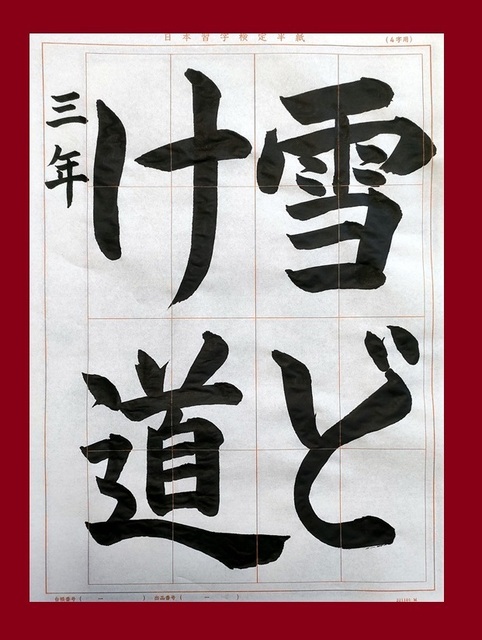 日本習字検定半紙
(4字用)
雪ど
け道
三年
合格番号 ( ー )
出品番号 ( ー )